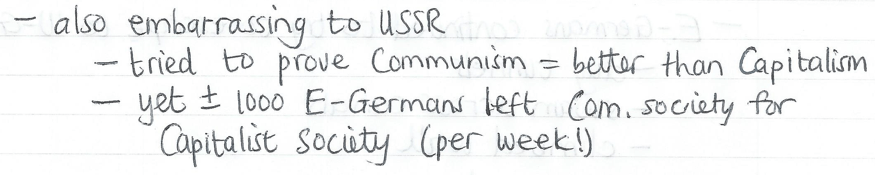 - also embarrassing to USSR
- tried to prove Communism = better than Capitalism
- yet ± 1000 E-Germans left Com. society for
Capitalist society (per week!)